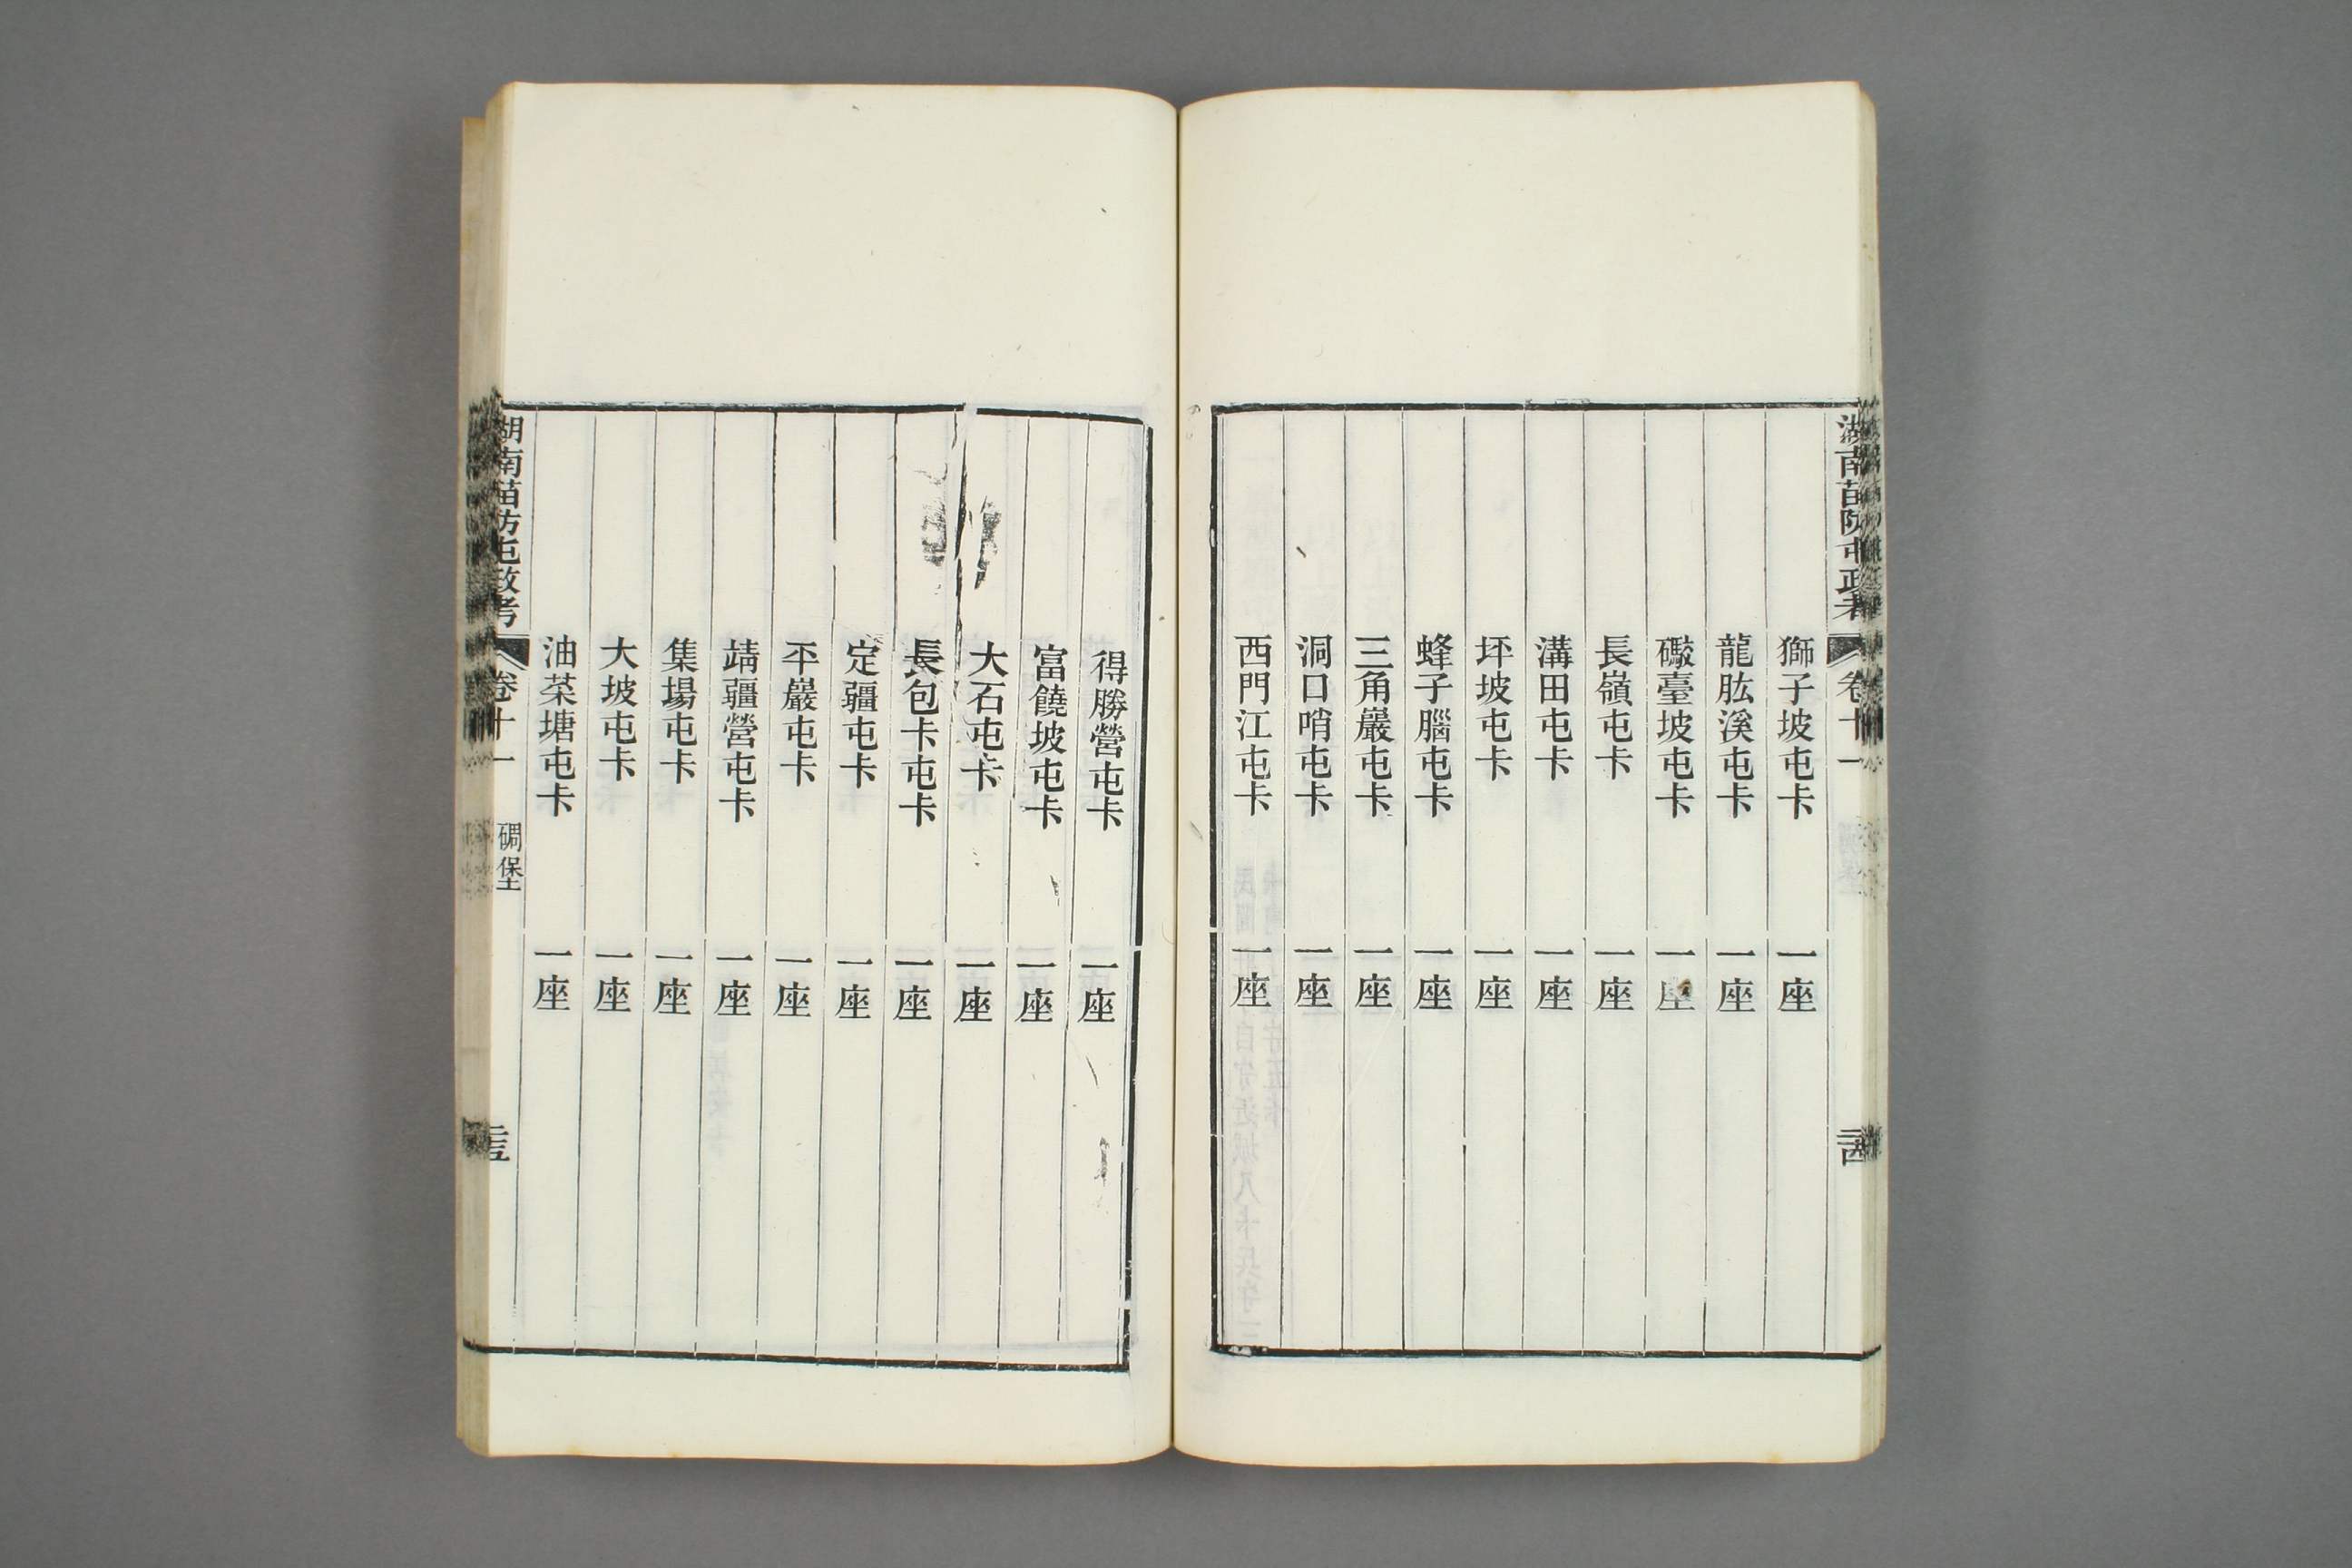 湖南苗防屯政考 卷十一
獅子坡屯卡 一座
龍肱溪屯卡 一座
礮臺坡屯卡 一座
長嶺屯卡 一座
溝田屯卡 一座
坪坡屯卡 一座
蜂子腦屯卡 一座
三角巖屯卡 一座
洞口哨屯卡 一座
西門江屯卡 一座
得勝營屯卡 一座
富饒坡屯卡 一座
大石屯卡 一座
長包卡屯卡 一座
定疆屯卡 一座
平巖屯卡 一座
靖疆營屯卡 一座
集場屯卡 一座
大坡屯卡 一座
油菜塘屯卡 一座
湖南苗防屯政考 卷十一 碉堡